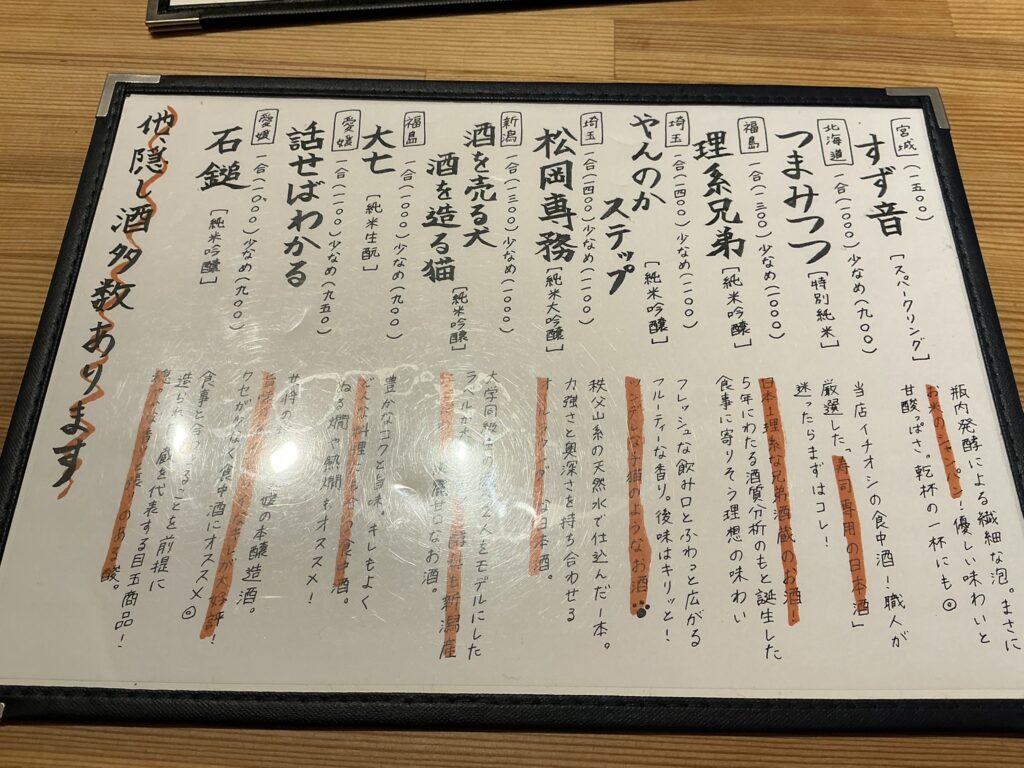 宮城
すず音
(一五〇〇)
[スパークリング]
瓶内発酵による繊細な泡。まさに
お米のシャンパン！優しい味わいと
甘酸っぱさ。乾杯の一杯にも◎
北海道
つまみつつ
一合(一〇〇〇)少なめ(九〇〇)
[特別純米]
当店イチオシの食中酒！職人が
厳選した「寿司専用の日本酒」
迷ったらまずはコレ！
福島
理系兄弟
一合(一三〇〇)少なめ(一〇〇〇)
[純米吟醸]
日本1理系な兄弟酒蔵のお酒！
5年にわたる酒質分析のもと誕生した
食事に寄りそう理想の味わい
埼玉
やんのか
ステップ
一合(一四〇〇)少なめ(一一〇〇)
[純米吟醸]
フレッシュな飲み口とふわっと広がる
フルーティーな香り。後味はキリッと！
ツンデレな子猫のようなお酒
埼玉
松岡専務
一合(一四〇〇)少なめ(一一〇〇)
[純米大吟醸]
秩父山系の天然水で仕込んだ一本。
力強さと奥深さを持ち合わせる
オールラウンダーな日本酒。
新潟
酒を売る犬
酒を造る猫
一合(一三〇〇)少なめ(一〇〇〇)
[純米吟醸]
大学同級生の 2人をモデルにした
ラベルが も新潟産
麗甘口なお酒。
福島
大七
一合(一一〇〇)少なめ(九〇〇)
[純米生酛]
豊かなコクと旨味。キレもよく
どんな料理にも合う食中酒。
ぬる燗や熱燗もオススメ！
愛媛
話せばわかる
一合(一一〇〇)少なめ(九五〇)
女将の 媛の本醸造酒。
旨味 なキレが大好評！
クセがなく食中酒にオススメ◎
愛媛
石鎚
一合(一〇〇〇)少なめ(九〇〇)
[純米吟醸]
食事と合わせることを前提に
造られ 蔵を代表する目玉商品！
穏やかな香りと張りのある酸。
他隠し酒多数あります